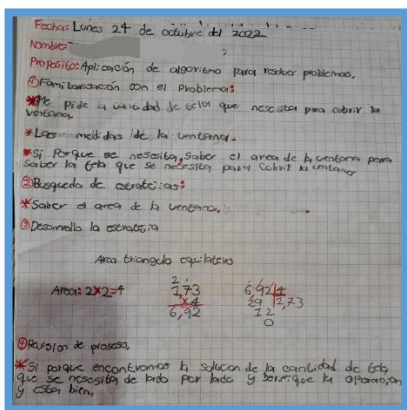 Fecha: Lunes 24 de octubre del 2022
Nombre:
Proposito: Aplicación de algoritmo para resolver problemas.
①Familiarización con el Problema:
*Me pide la cantidad de tela que nesesita para cubrir la
ventana.
*Las medidas de la ventana.
*Si Porque se nesosita, saber el area de la ventana para
saber la tela que se necesita para cubrir la ventana
②Busqueda de estrategias:
*Saber el area de la ventana.
③Desarrollo la estrategia
Area triangulo equilatero
Area: 2x2=4
2
1,73
x4
6,92
6,92 4
29 1,73
12
0
④Revision de proseso.
*Si porque encontramos la solucion de la cantidad de tela
que se nesesita de lado por lado y la operación
y esta bien.